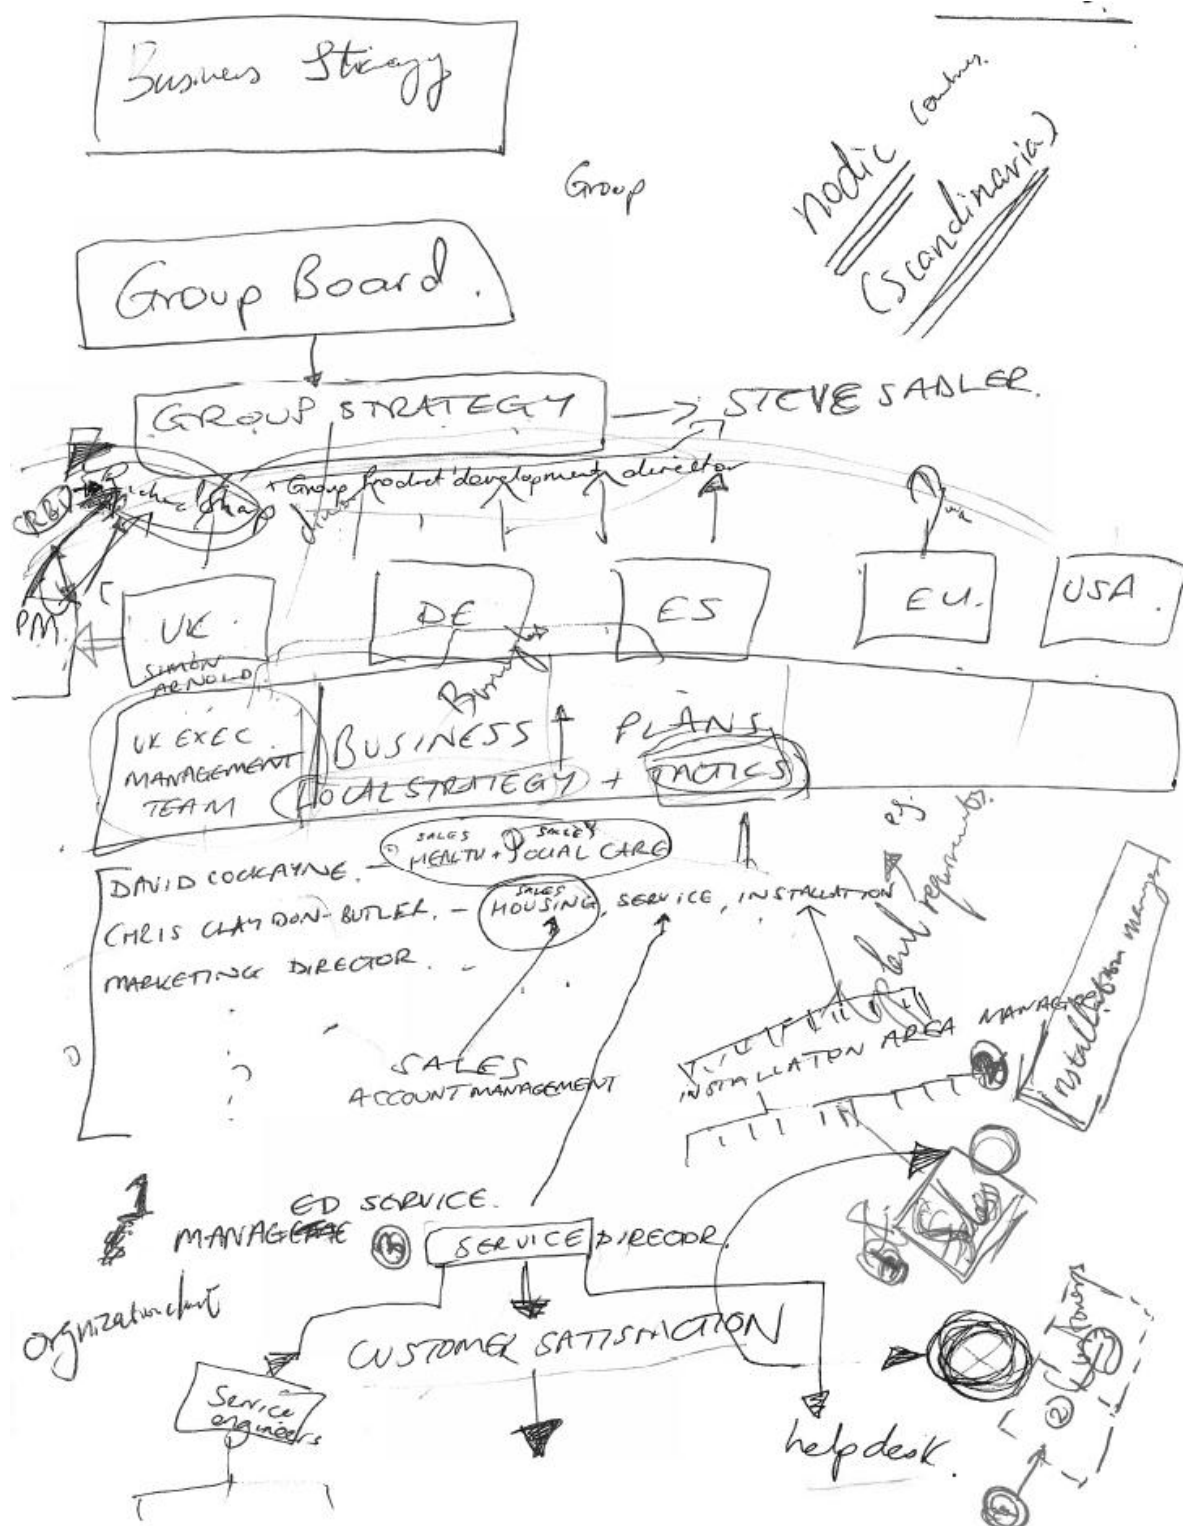 Business Strategy
nodic
(Scandinavia)
Group
Group Board.
GROUP STRATEGY
STEVE SADLER.
Richard Sharp + Group product development director
PM
UK.
SIMON
ARNOLD
DE
ES
EU.
USA.
via
UK EXEC
MANAGEMENT
TEAM
BUSINESS PLANS
LOCAL STRATEGY + TACTICS
SALES SALES
DAVID COCKAYNE. - HEALTH + SOCIAL CARE
SALES
CHRIS CLAYDON-BUTLER. - HOUSING, SERVICE, INSTALLATION
MARKETING DIRECTOR.
requirements.
Installation manager
SALES
ACCOUNT MANAGEMENT
INSTALLATON AREA MANAGER
1
ED SERVICE.
MANAGE
SERVICE DIRECTOR.
orgnization chart
CUSTOMER SATISFACTION
Service
engineers
helpdesk.
2
Customers